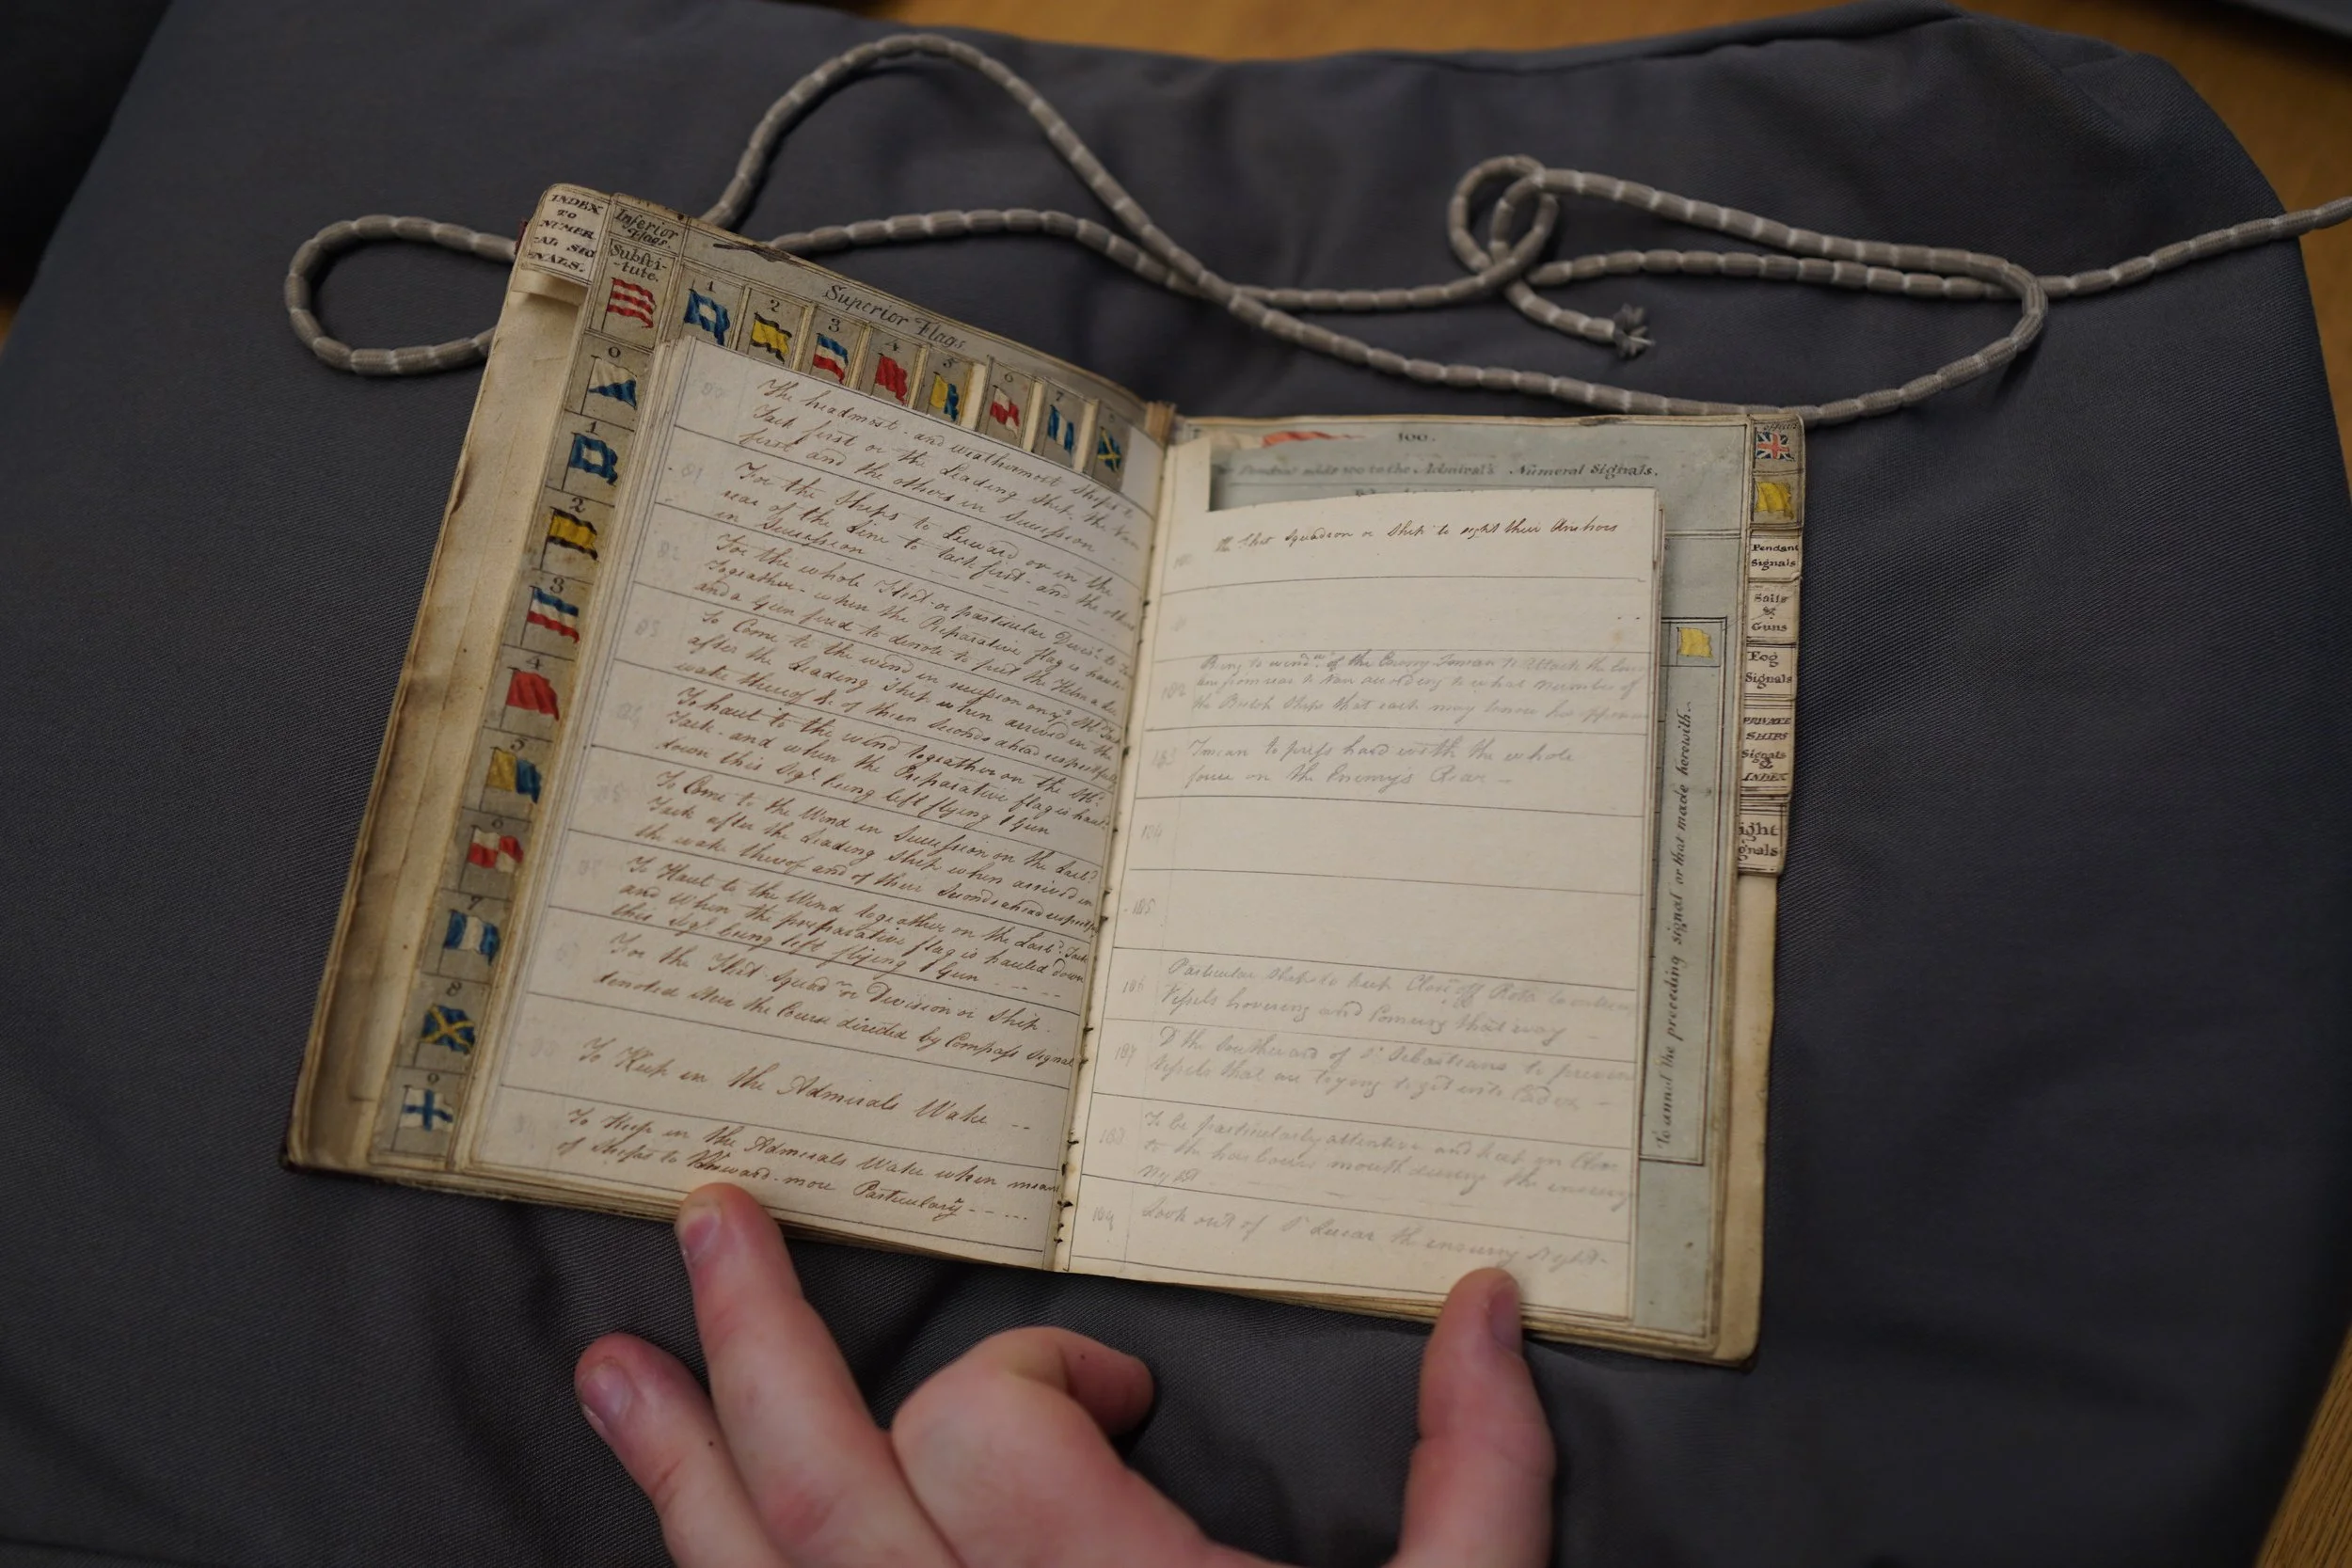 INDEX
TO
NUMER
-AL SIG
-NALS.
Inferior
Flags.
Substi-
-tute.
0
1
2
3
4
5
6
7
8
9
Superior Flags
1
2
3
4
5
6
7
8
The headmost and weathermost Ships to
Tack first or the Leading Ship the Van
first and the others in Succession
81
For the Ships to Leeward or in the
rear of the Line to tack first and the others
in Succession
82
For the whole Fleet or particular Divisn to
Togeather when the Preparative flag is hauled
and a Gun fired to denote to put the Helm a lee
To Come to the wind in succession on
after the Leading Ship when arrived in the
wake thereof & of their Seconds ahead
To haul to the wind togeather on the
Tack and when the Preparative flag is hauld
down this Sigl being left flying 1 Gun
To Come to the Wind in Succession on the Larbd
Tack after the Leading Ship when arrived in
the wake thereof and of their Seconds ahead
To Haul to the Wind togeather on the Larbd Tack
and When the preparative flag is hauled down
this Sigl being left flying 1 Gun
For the Fleet Squadn or Division or Ship
denoted Steer the Course directed by Compass Signal
To Keep in the Admirals Wake
To Keep in the Admirals Wake when
of Ships to more Particulary
100.
to the Admiral's Numeral Signals.
Squadron or Ship to sight their Anchors
182
of the Enemy I mean to attack the
from rear to Van according to what number of
the British Ships that each may know his
183
I mean to press hard with the whole
force on the Enemy's Rear
184
185
186
Particular Ships to keep Close off Rota to
Vessels hovering and Coming that way
187
Do the Southward of St Sebastians to prevent
Vessels that are trying to get into Cadiz
188
To be particularly attentive and keep in Close
to the harbours mouth during the ensuing
Night
Look out of St Lucar the ensuing Night
To annul the preceding signal or that made herewith.
Pendant
Signals
Sails
&
Guns
Fog
Signals
PRIVATE
SHIPS
Signals
&
INDEX
ight
gnals